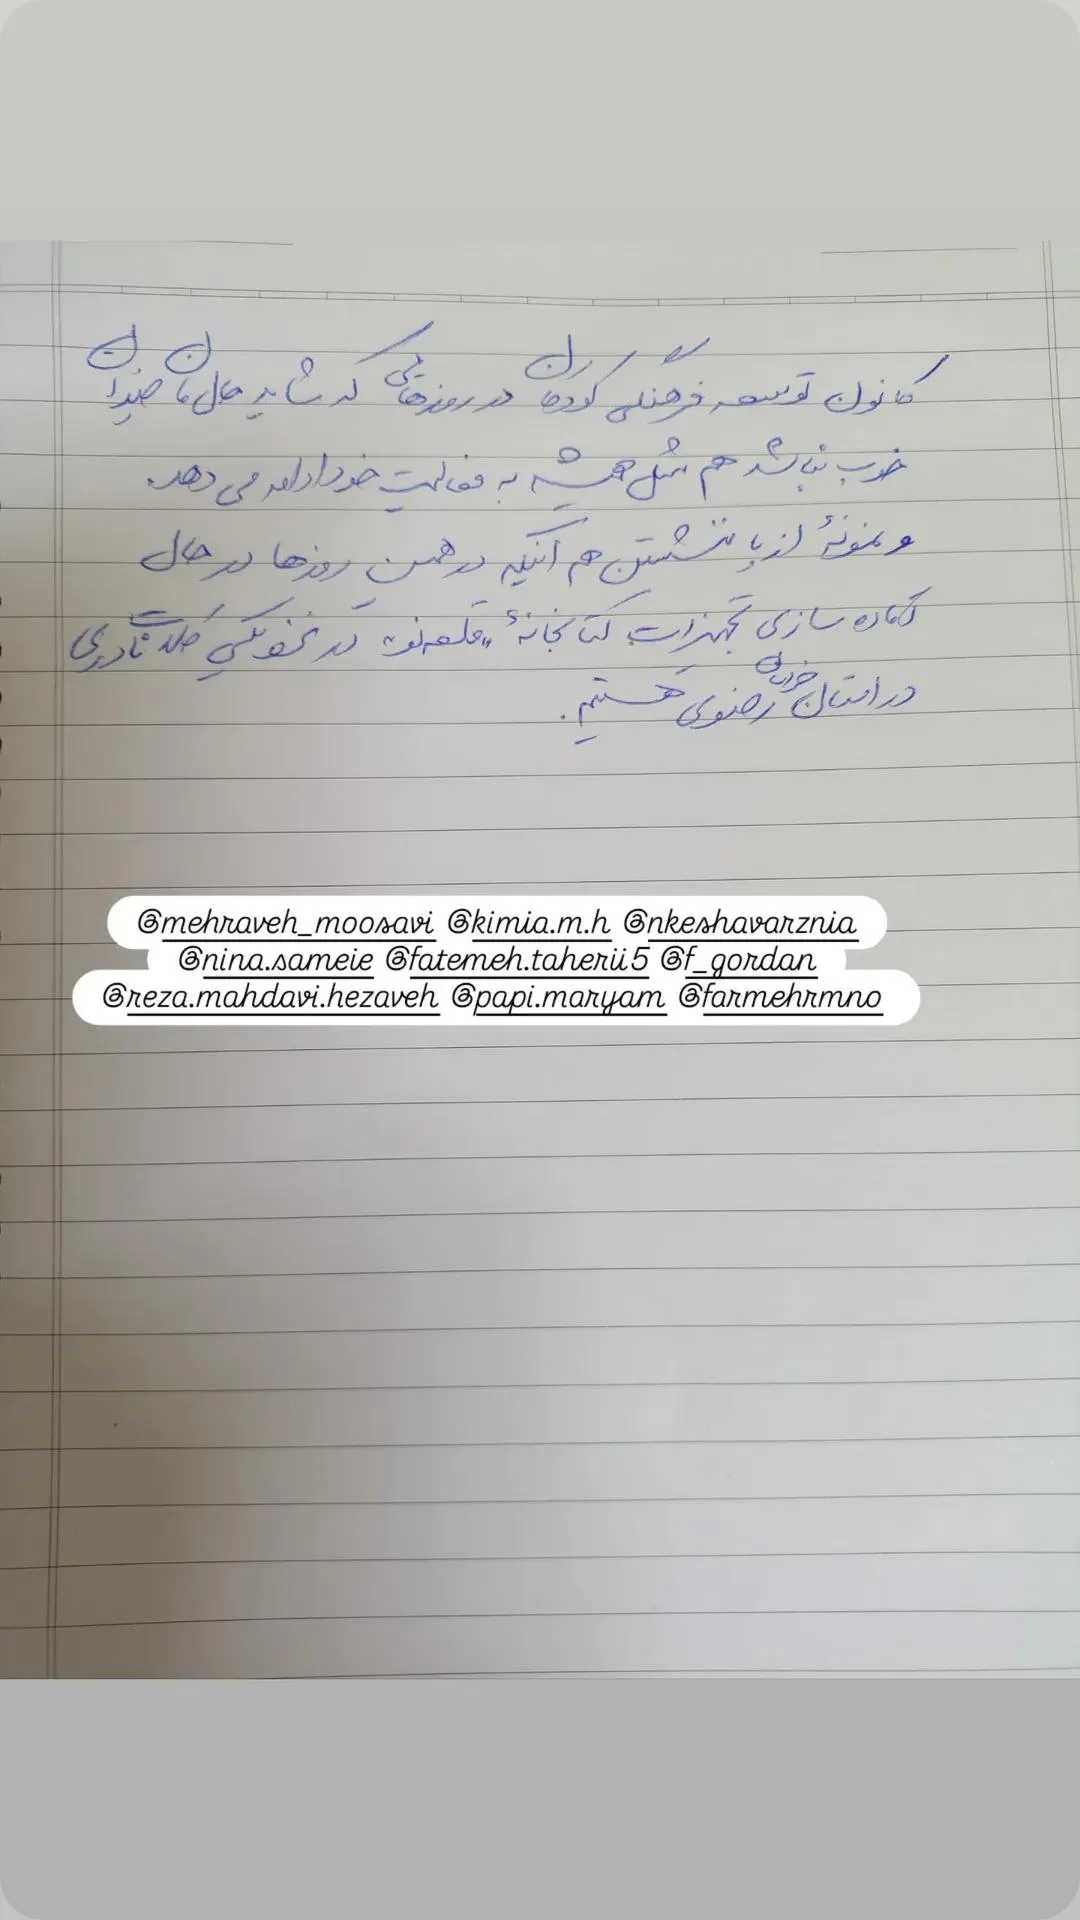 کانون توسعه فرهنگی کودکان در روزهایی که شاید حال‌مان چندان
خوب نباشد هم مثل همیشه به فعالیت خود ادامه می‌دهد.
و نمونهٔ از پا ننشستن هم آنکه در همین روزها در حال
آماده سازی تجهیزات کتابخانهٔ «قلعه‌نو» در نزدیکی کلات نادری
در استان خراسان رضوی هستیم.
@mehraveh_moosavi @kimia.m.h @nkeshavarznia
@nina.sameie @fatemeh.taherii5 @f_gordan
@reza.mahdavi.hezaveh @papi.maryam @farmehrmno